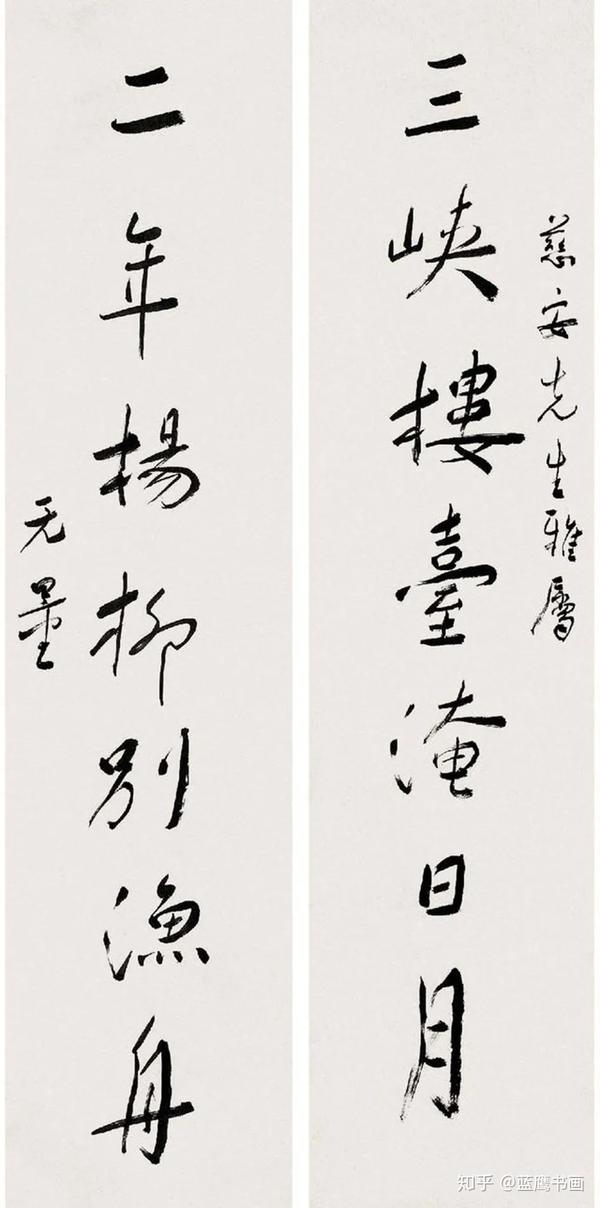 慈安先生雅属
三峡樓臺淹日月
二年楊柳別漁舟
无量
知乎 @蓝鹰书画